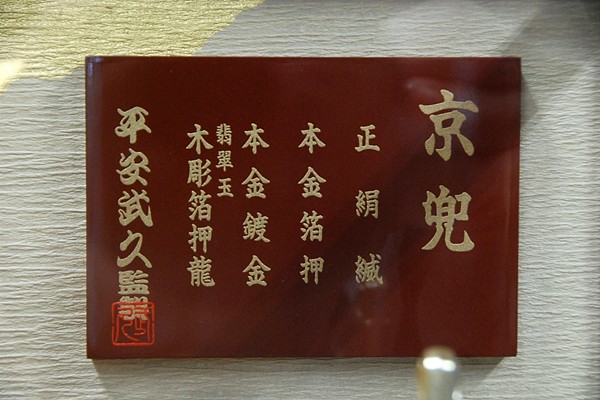 京兜
正絹縅
本金箔押
本金鍍金
翡翠玉
木彫箔押龍
平安武久監製